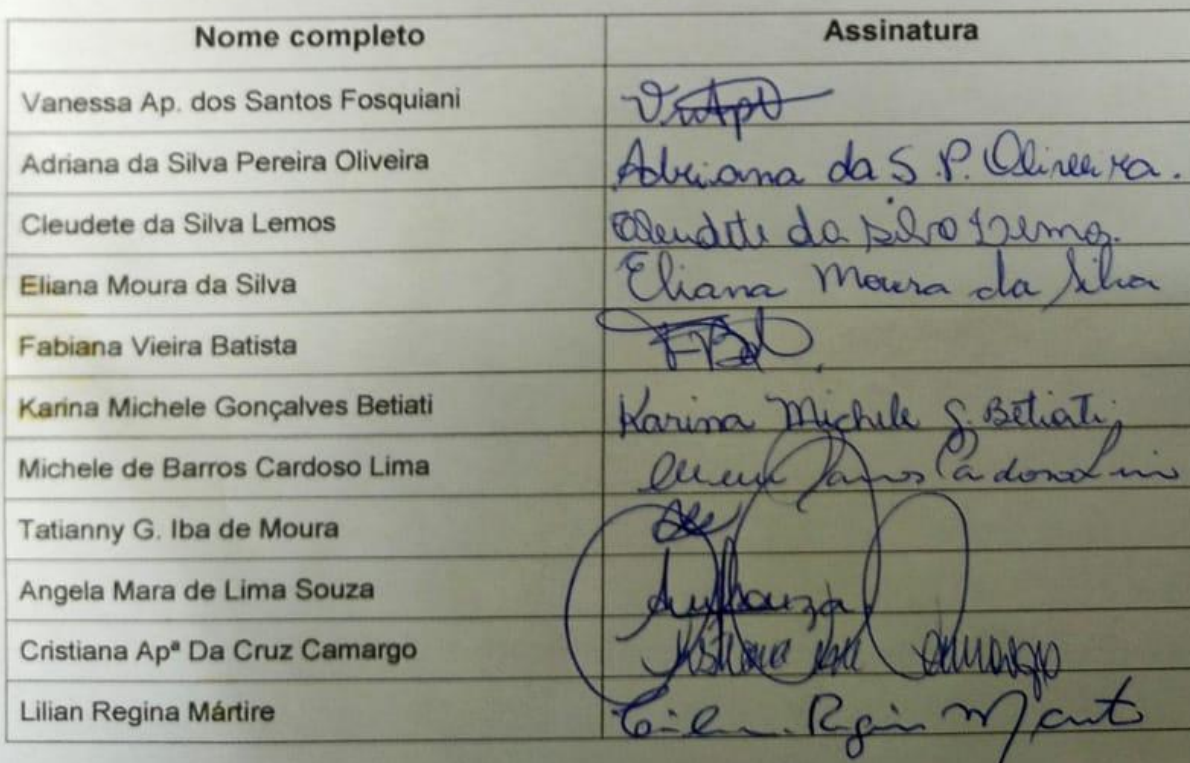 Nome completo Assinatura
Vanessa Ap. dos Santos Fosquiani
Adriana da Silva Pereira Oliveira Adriana da S. P. Oliveira.
Cleudete da Silva Lemos Cleudete da Silva Lemos.
Eliana Moura da Silva Eliana Moura da Silva
Fabiana Vieira Batista
Karina Michele Gonçalves Betiati Karina Michele G. Betiati
Michele de Barros Cardoso Lima
Tatianny G. Iba de Moura
Angela Mara de Lima Souza
Cristiana Apª Da Cruz Camargo Camargo
Lilian Regina Mártire